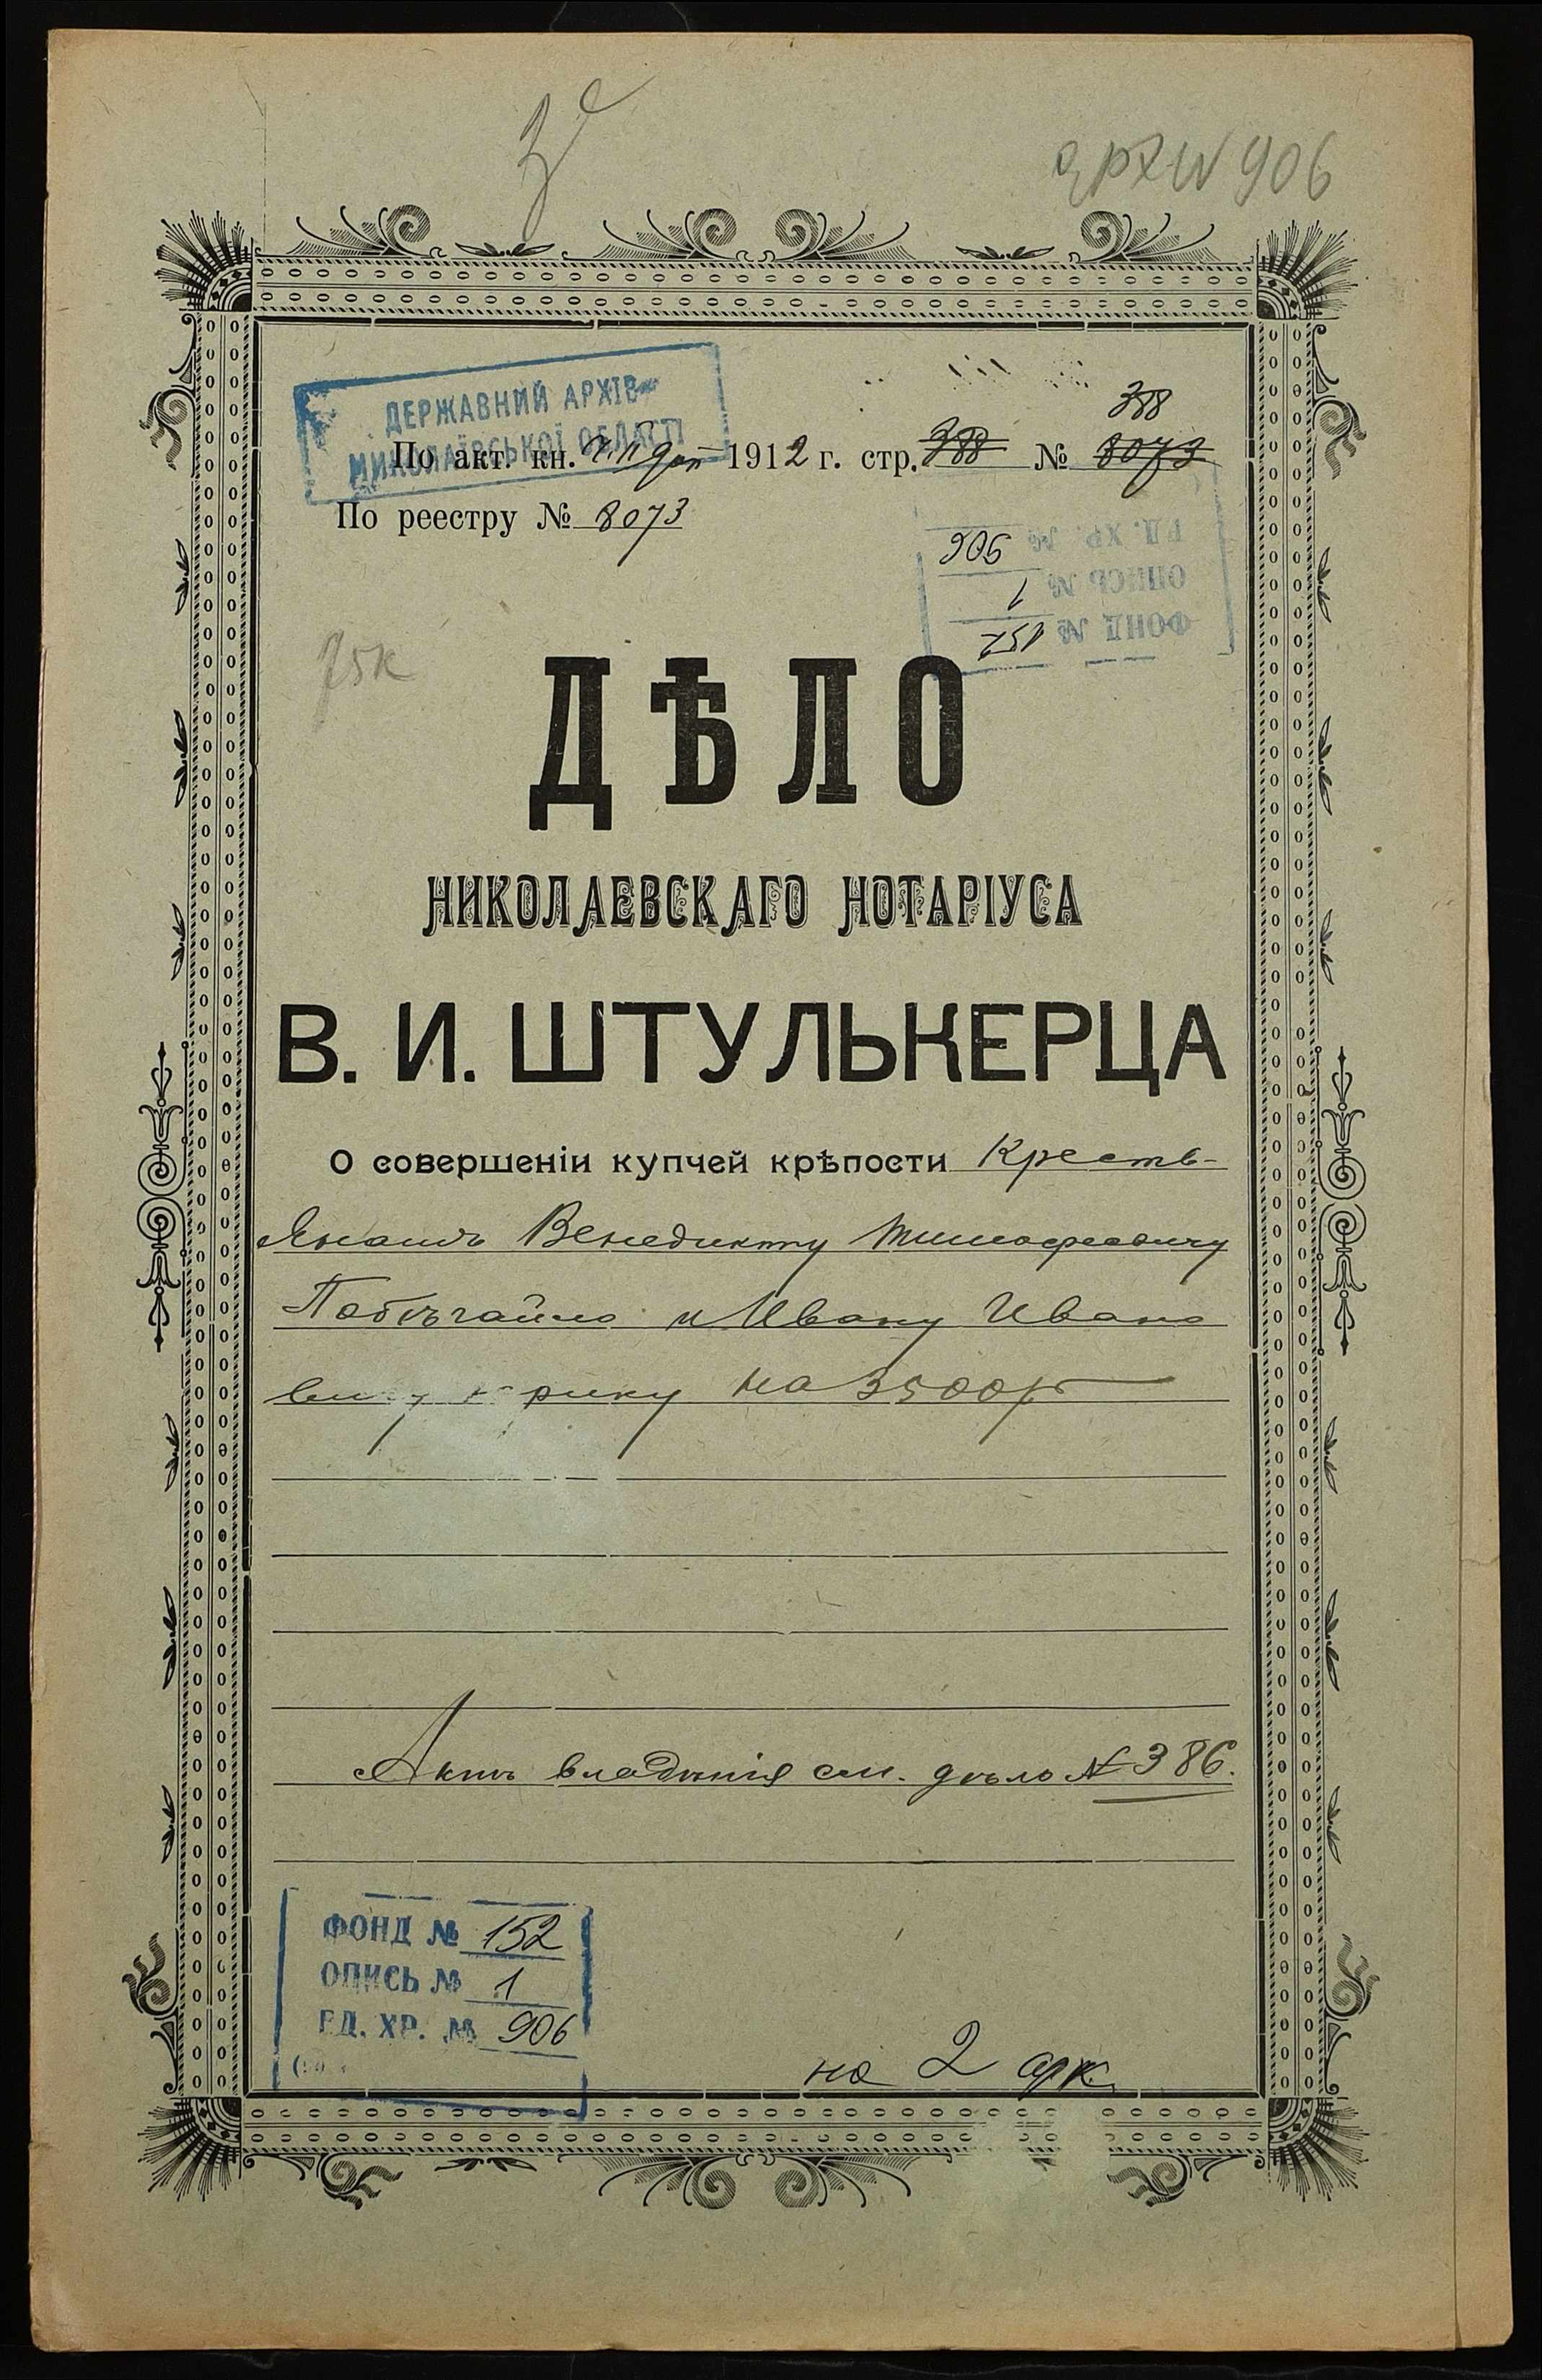 906
ДЕРЖАВНИЙ АРХІВ
МИКОЛАЇВСЬКОЇ ОБЛАСТІ
388
По акт. кн. 1912 г. стр. 388 № 8073
По реестру № 8073
ФОНД № 152
ОПИСЬ № 1
ЕД. ХР. № 906
75к
ДѢЛО
НИКОЛАЕВСКАГО НОТАРІУСА
В. И. ШТУЛЬКЕРЦА
О совершеніи купчей крѣпости Кресть-
янамъ Венедикту Тимофеевичу
Побѣгайло и Ивану Ивано
на 3500 р
Актъ владѣнія см. дѣло № 386.
ФОНД № 152
ОПИСЬ № 1
ЕД. ХР. № 906
на 2 арк.